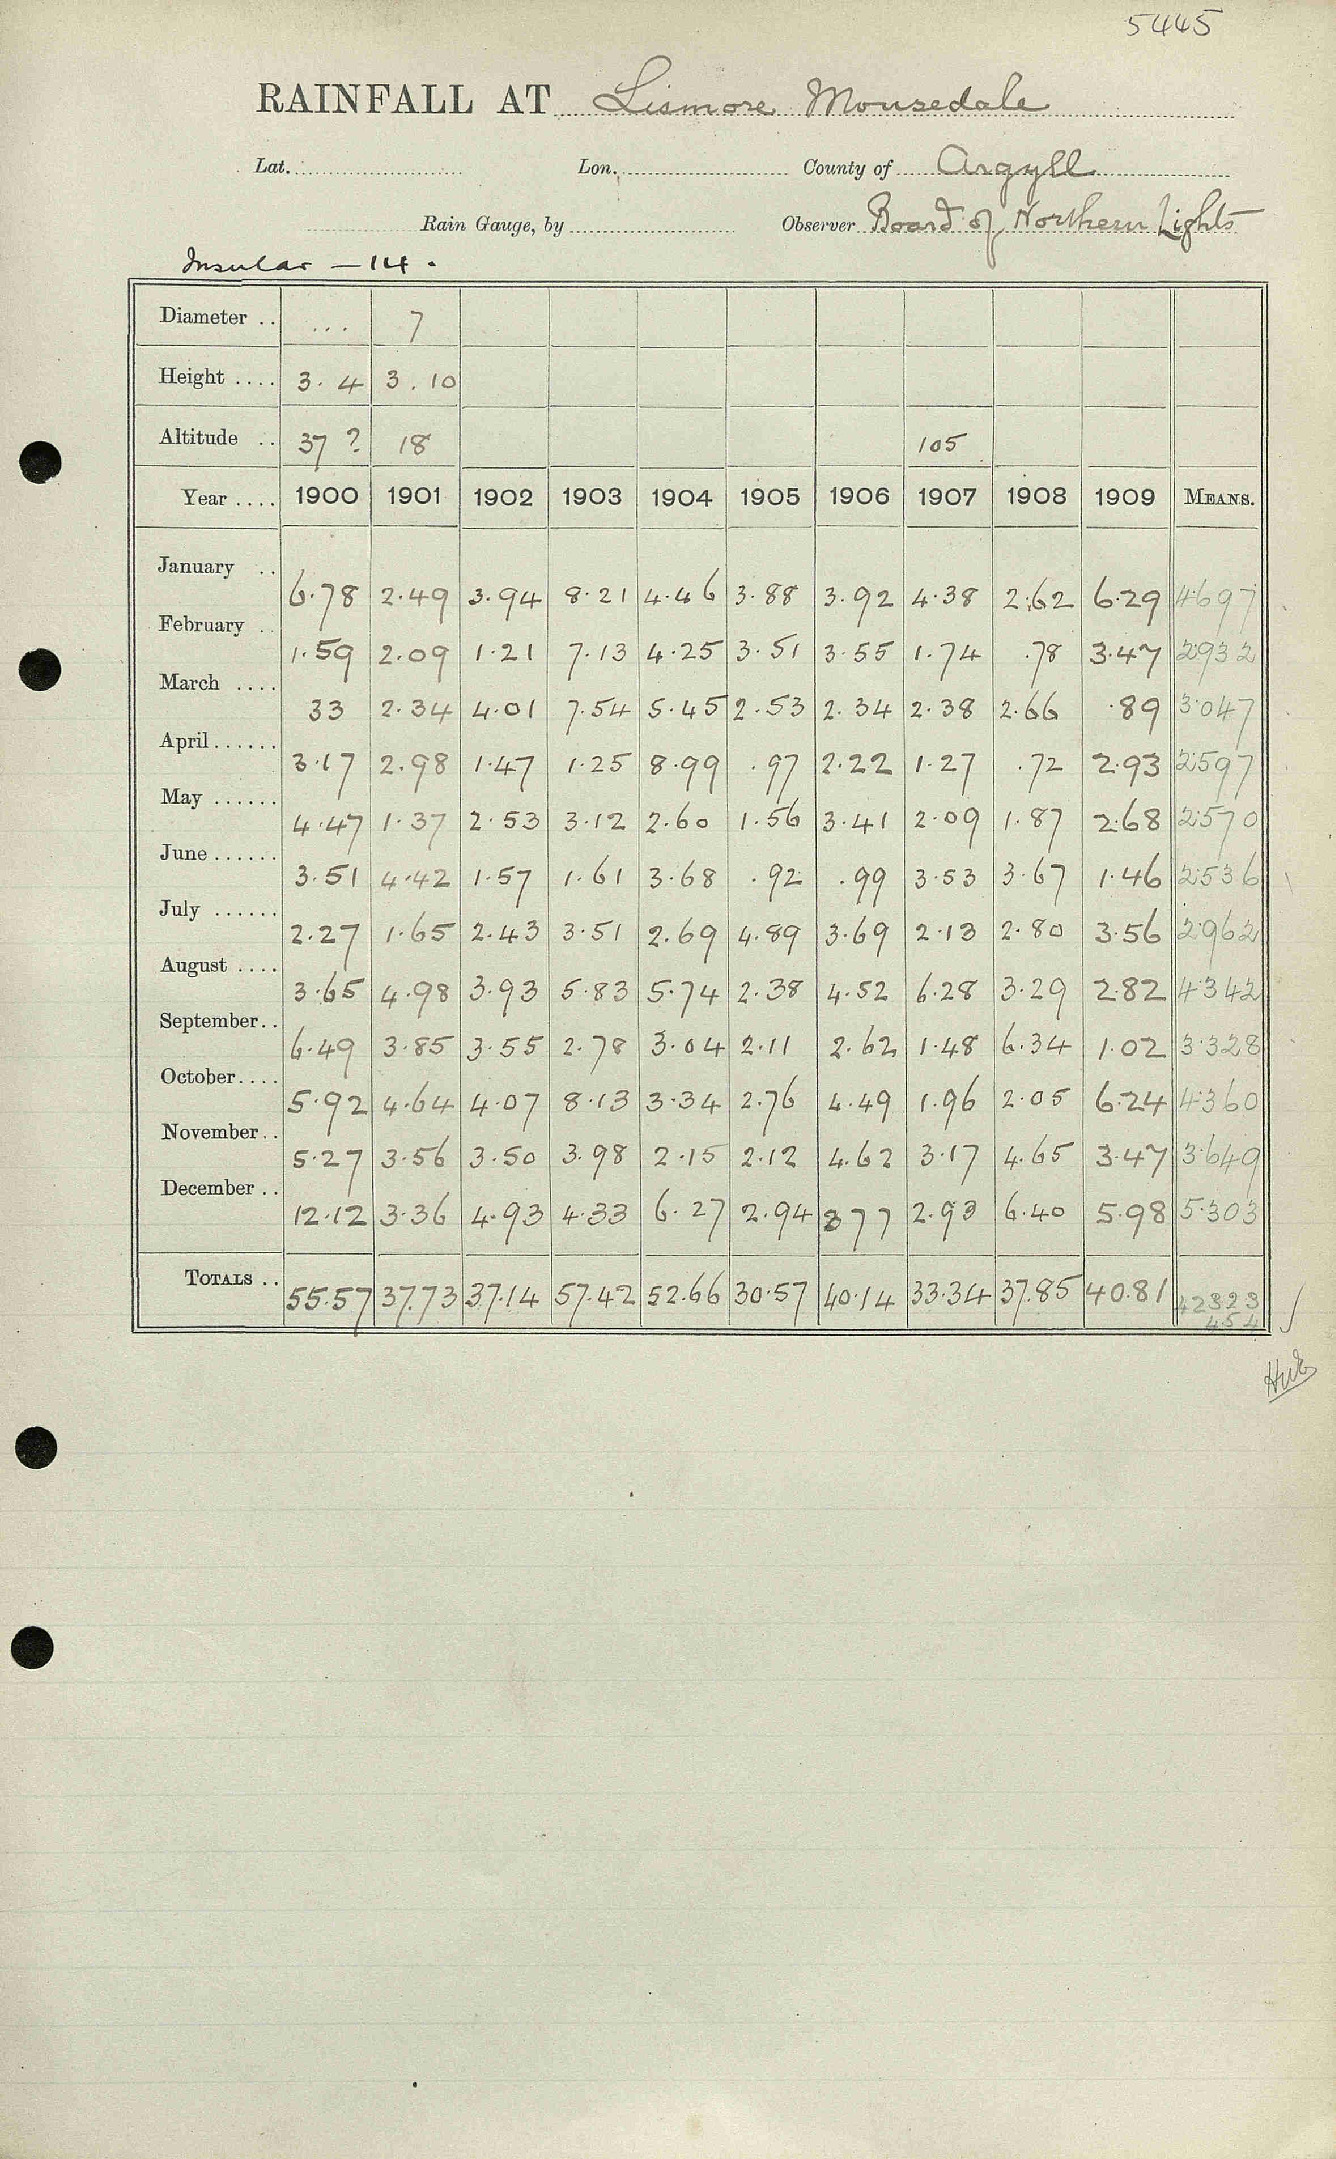 5445
RAINFALL AT Lismore Mousedale
Lat. Lon. County of Argyll
Rain Gauge, by Observer Board of Northern Lights
Insular — 14.
Diameter .. ... 7
Height .... 3.4 3.10
Altitude .. 37? 18 105
Year .... 1900 1901 1902 1903 1904 1905 1906 1907 1908 1909 MEANS.
January .. 6.78 2.49 3.94 8.21 4.46 3.88 3.92 4.38 2.62 6.29 4.697
February .. 1.59 2.09 1.21 7.13 4.25 3.51 3.55 1.74 .78 3.47 2.932
March .... 33 2.34 4.01 7.54 5.45 2.53 2.34 2.38 2.66 .89 3.047
April...... 3.17 2.98 1.47 1.25 8.99 .97 2.22 1.27 .72 2.93 2.597
May ...... 4.47 1.37 2.53 3.12 2.60 1.56 3.41 2.09 1.87 2.68 2.570
June ...... 3.51 4.42 1.57 1.61 3.68 .92 .99 3.53 3.67 1.46 2.536
July ...... 2.27 1.65 2.43 3.51 2.69 4.89 3.69 2.13 2.80 3.56 2.962
August .... 3.65 4.98 3.93 5.83 5.74 2.38 4.52 6.28 3.29 2.82 4.342
September.. 6.49 3.85 3.55 2.78 3.04 2.11 2.62 1.48 6.34 1.02 3.328
October.... 5.92 4.64 4.07 8.13 3.34 2.76 4.49 1.96 2.05 6.24 4.360
November.. 5.27 3.56 3.50 3.98 2.15 2.12 4.62 3.17 4.65 3.47 3.649
December .. 12.12 3.36 4.93 4.33 6.27 2.94 377 2.93 6.40 5.98 5.303
TOTALS .. 55.57 37.73 37.14 57.42 52.66 30.57 40.14 33.34 37.85 40.81 42323
454